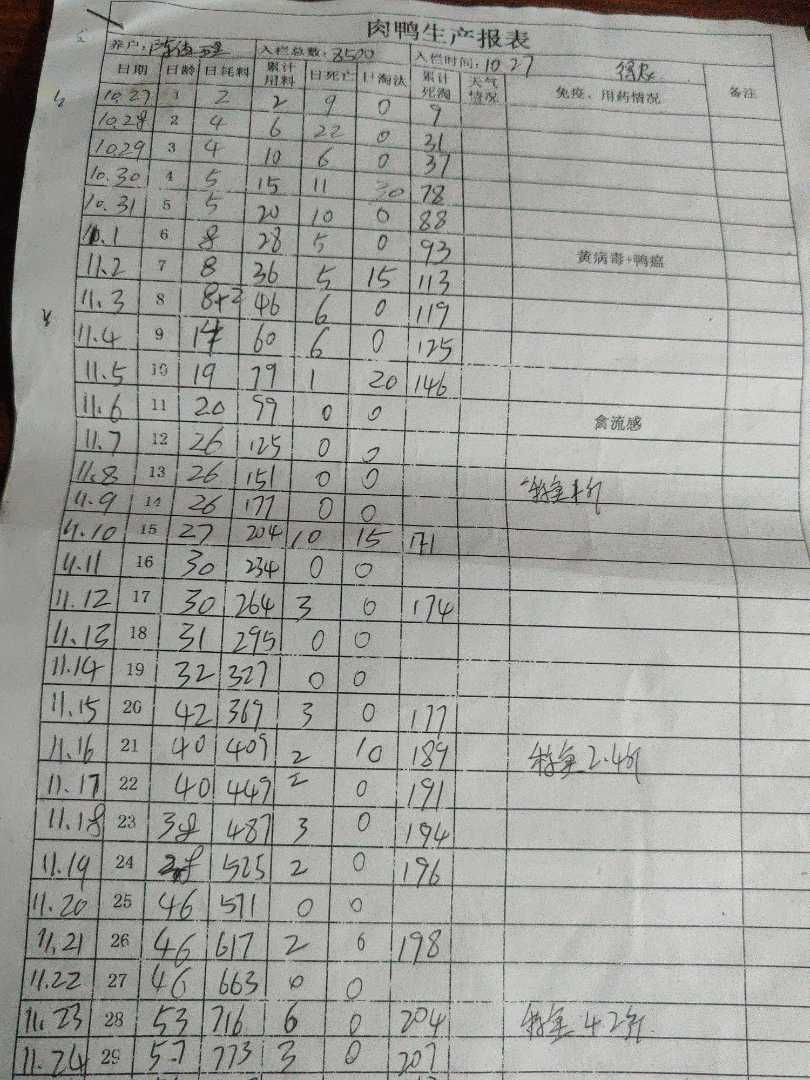 肉鸭生产报表
养户: 入栏总数: 8500 入栏时间: 10.27
日期 日龄 日耗料 累计用料 日死亡 日淘汰 累计死淘 天气情况 免疫、用药情况 备注
10.27 1 2 2 9 0 9
10.28 2 4 6 22 0 31
10.29 3 4 10 6 0 37
10.30 4 5 15 11 30 78
10.31 5 5 20 10 0 88
11.1 6 8 28 5 0 93 黄病毒+鸭瘟
11.2 7 8 36 5 15 113
11.3 8 8+2 46 6 0 119
11.4 9 14 60 6 0 125
11.5 10 19 79 1 20 146
11.6 11 20 99 0 0 禽流感
11.7 12 26 125 0 0
11.8 13 26 151 0 0
11.9 14 26 177 0 0
11.10 15 27 204 10 15 171
11.11 16 30 234 0 0
11.12 17 30 264 3 0 174
11.13 18 31 295 0 0
11.14 19 32 327 0 0
11.15 20 42 369 3 0 177
11.16 21 40 409 2 10 189 2.4斤
11.17 22 40 449 2 0 191
11.18 23 38 487 3 0 194
11.19 24 38 525 2 0 196
11.20 25 46 571 0 0
11.21 26 46 617 2 0 198
11.22 27 46 663 0 0
11.23 28 53 716 6 0 204 4.2斤
11.24 29 57 773 3 0 207